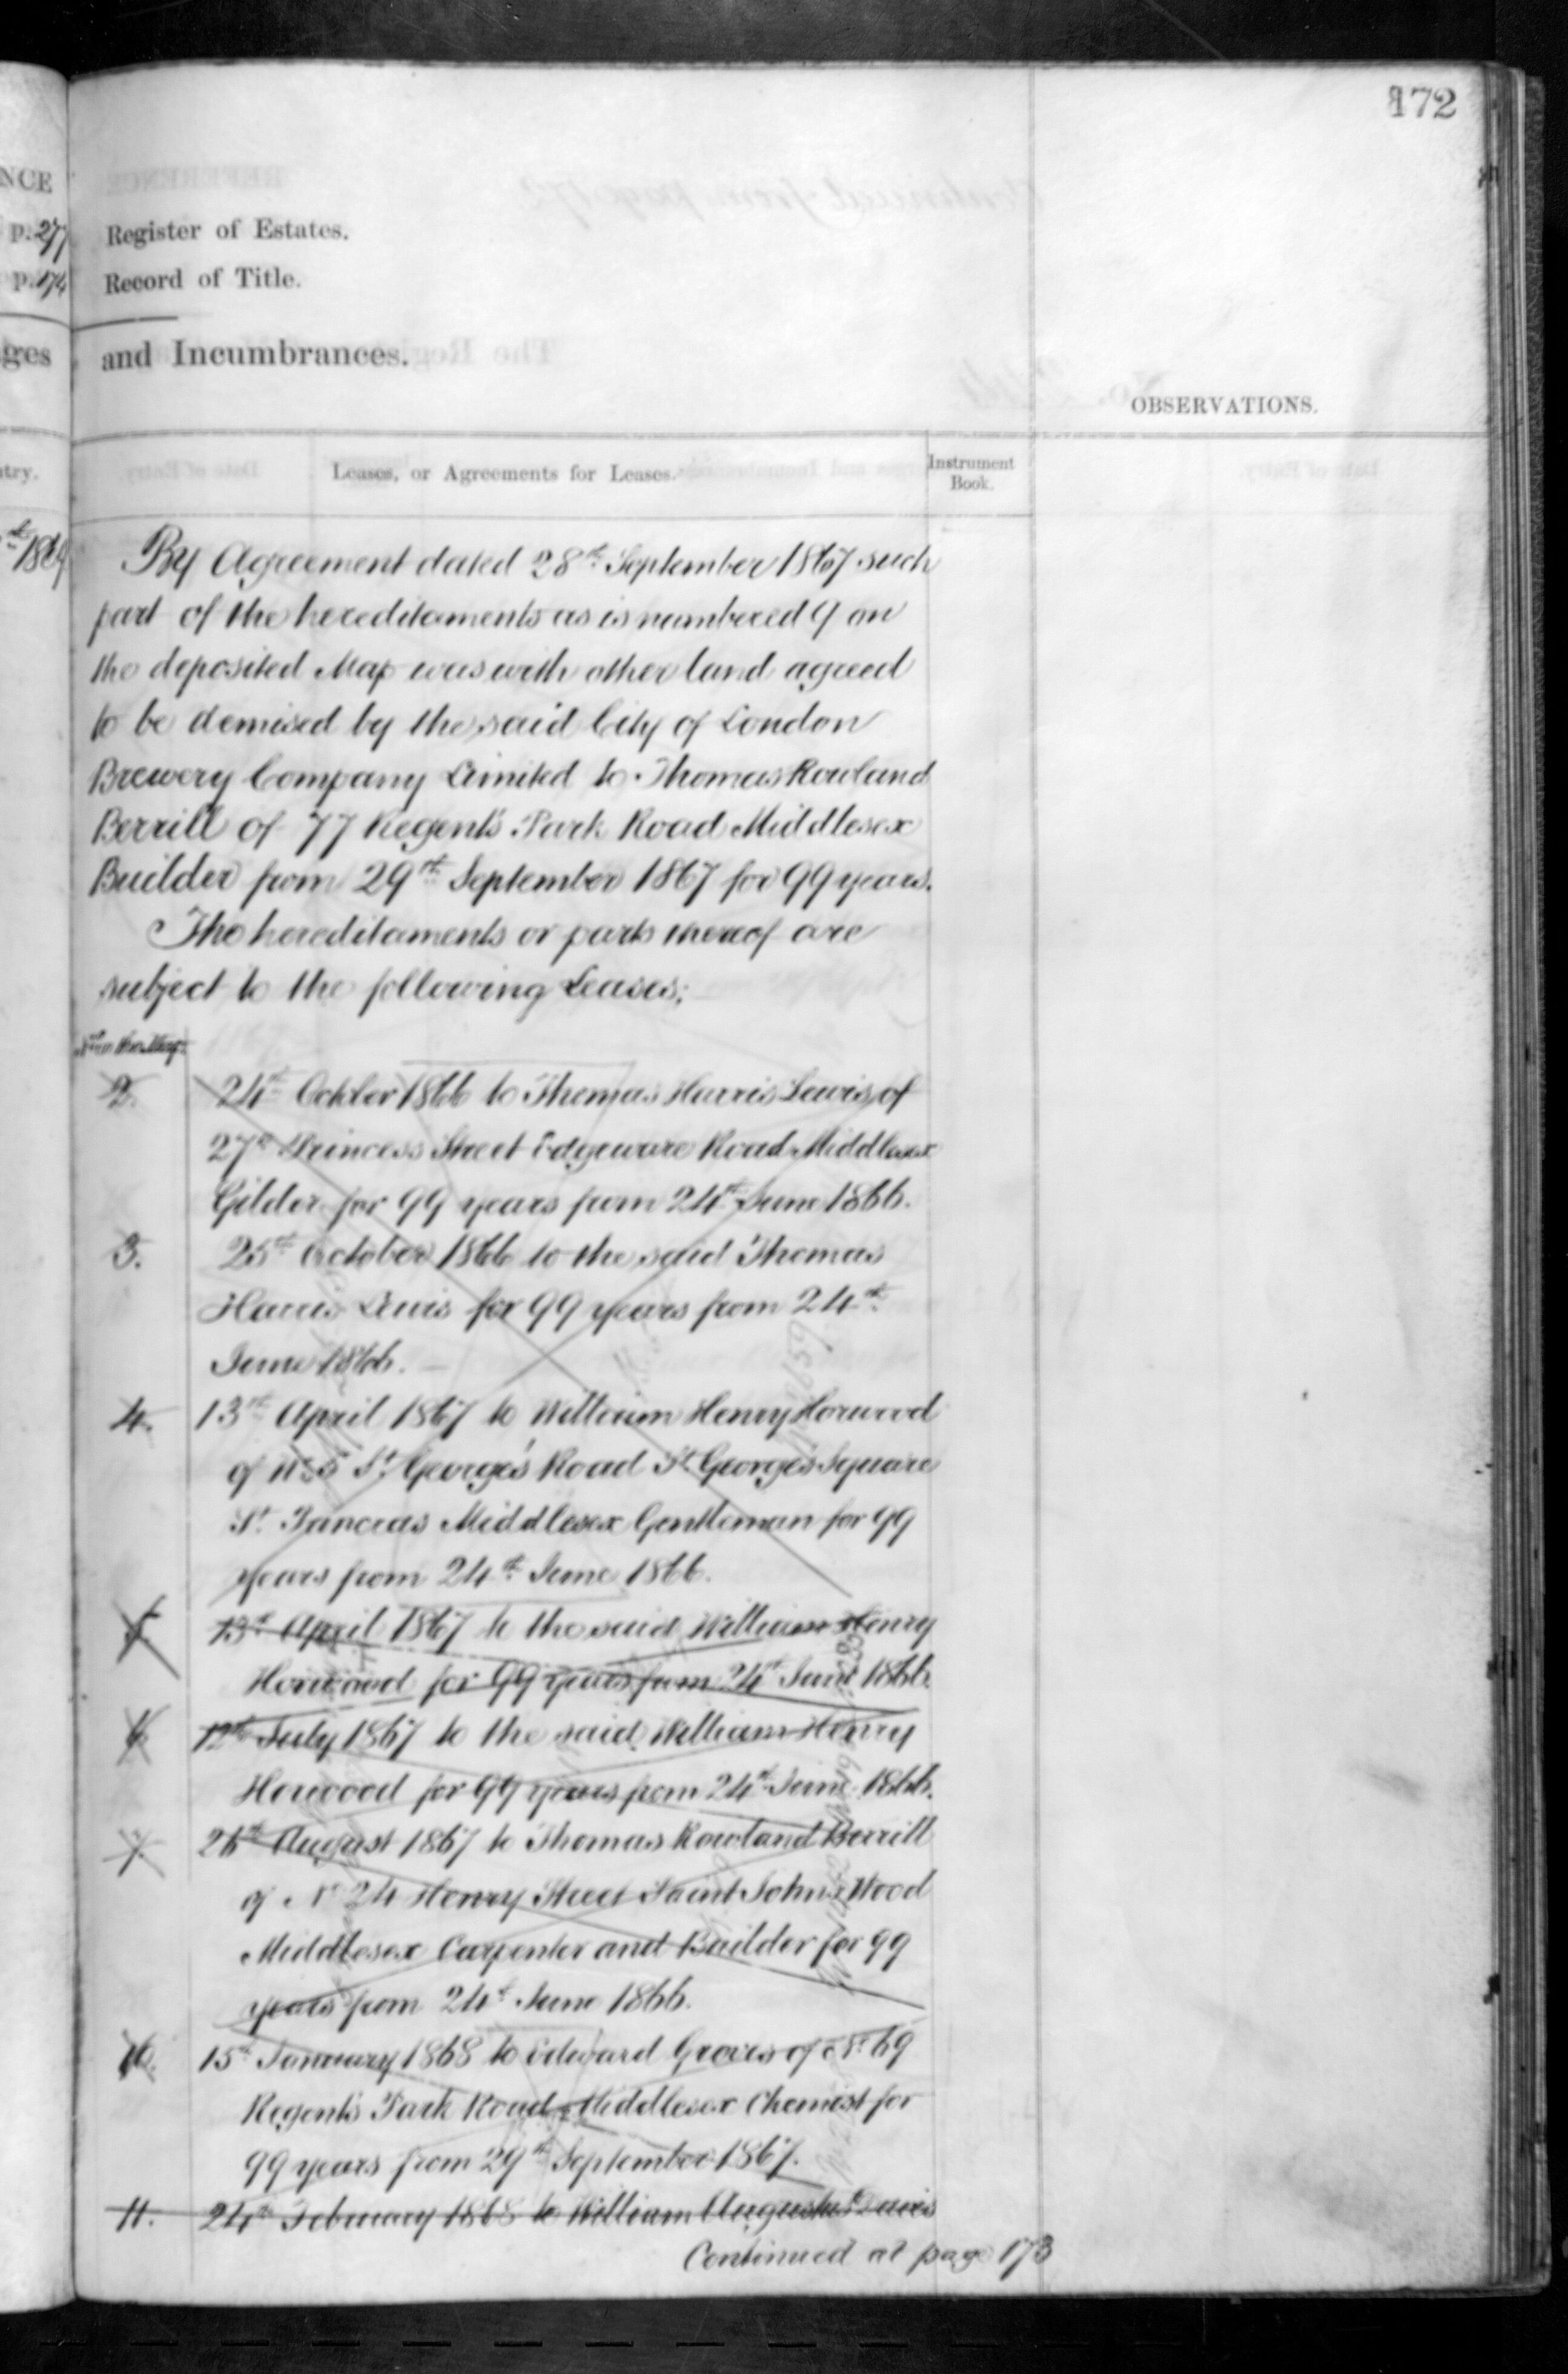 172
NCE
p. 277
p. 174
ges
try.
Register of Estates.
Record of Title.
and Incumbrances.
OBSERVATIONS.
Leases, or Agreements for Leases.
Instrument
Book.
By Agreement dated 28th September 1867 such
part of the hereditaments as is numbered 9 on
the deposited Map was with other land agreed
to be demised by the said City of London
Brewery Company Limited to Thomas Rowland
Berrill of 77 Regent's Park Road Middlesex
Builder from 29th September 1867 for 99 years.
The hereditaments or parts thereof are
subject to the following Leases;
No on the Map.
2. 24th October 1866 to Thomas Harris Lewis of
27A Princess Street Edgeware Road Middlesex
Gilder for 99 years from 24th June 1866.
3. 25th October 1866 to the said Thomas
Harris Lewis for 99 years from 24th
June 1866.
4. 13th April 1867 to William Henry Horwood
of No. 5 St. George's Road St. George's Square
St. Pancras Middlesex Gentleman for 99
years from 24th June 1866.
5. 13th April 1867 to the said William Henry
Horwood for 99 years from 24th June 1866.
6. 12th July 1867 to the said William Henry
Horwood for 99 years from 24th June 1866.
7. 26th August 1867 to Thomas Rowland Berrill
of No 24 Henry Street Saint Johns Wood
Middlesex Carpenter and Builder for 99
years from 24th June 1866.
10. 15th January 1868 to Edward Groves of No 69
Regent's Park Road Middlesex Chemist for
99 years from 29th September 1867.
11. 24th February 1868 to William Augustus Davis
Continued at page 173